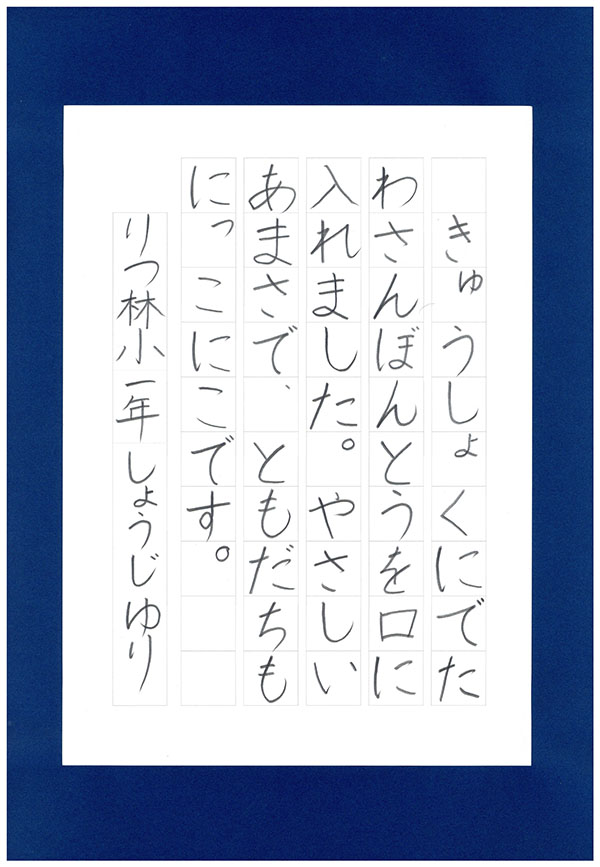 きゅうしょくにでた
わさんぼんとうを口に
入れました。やさしい
あまさで、ともだちも
にっこにこです。
りつ林小一年しょうじゆり